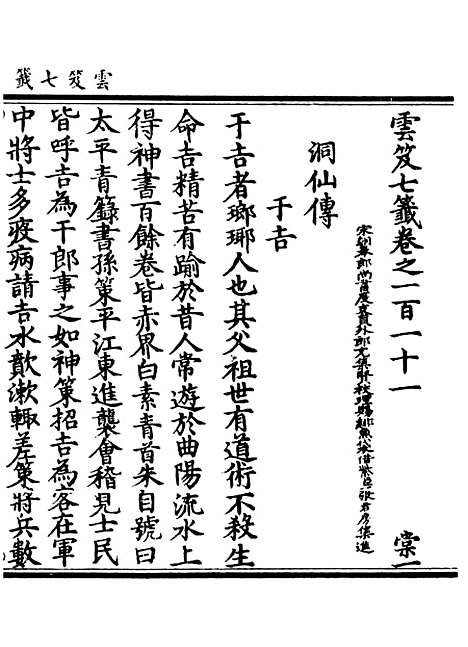 雲笈七籤
雲笈七籤卷之一百一十一 棠一
宋朝奉郎尚書度支員外郎充集賢校理賜緋魚袋借紫臣張君房集進
洞仙傳
于吉
于吉者瑯琊人也其父祖世有道術不殺生
命吉精苦有踰於昔人常遊於曲陽流水上
得神書百餘卷皆赤界白素青首朱目號曰
太平青籙書孫策平江東進襲會稽見士民
皆呼吉為干郎事之如神策招吉為客在軍
中將士多疫病請吉水歕漱輙差策將兵數